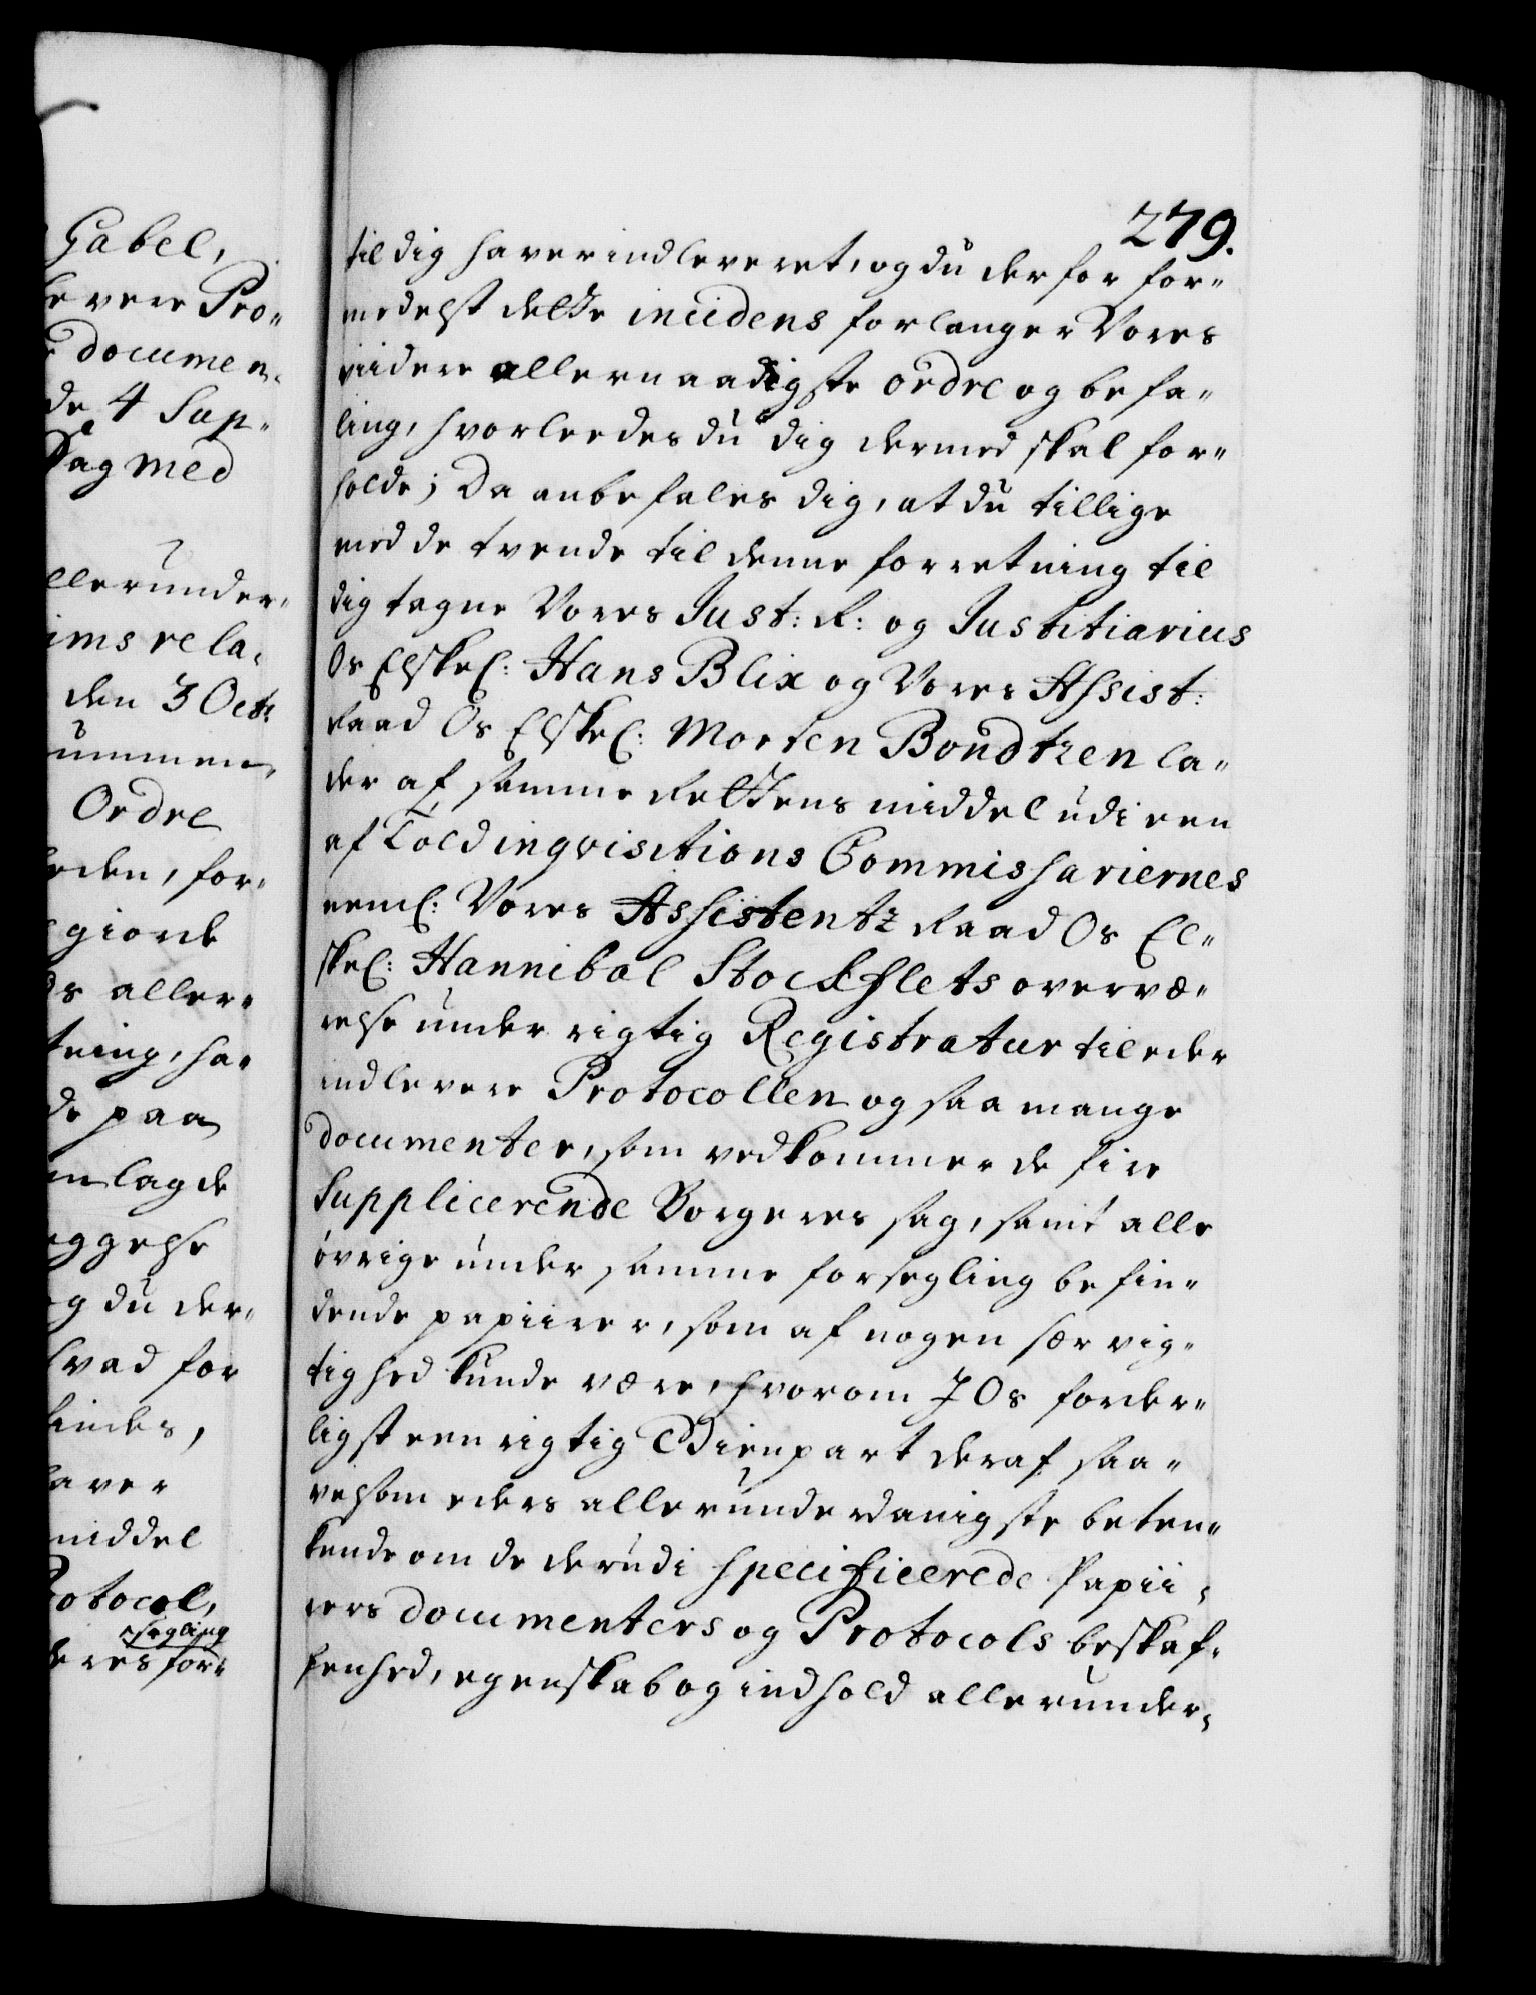 Gabel,
levere Pro-
documen-
de 4 Sup-
Sag med
allerunder-
ims rela-
den 3 Octr
ummen,
Ordre
heden, for-
giorde
ds aller-
tning, ha-
de paa
lagde
eggelse
og du der-
hvad for
findes,
haver
middel
Protocol,
segling
deres for-
279.
til dig haver indleveret, og du derfor for-
medelst dette incidens forlanger Vores
viidere allernaadigste ordre og befa-
ling, hvorleedes du dig dermed skal for-
holde; Da anbefales dig, at du tillige
med de tvende til denne forretning til
dig tagne Vores Just: R: og Justitiarius
Os Elskel: Hans Blix og Vores Assist:
Raad Os Elskel: Morten Bondtzen la-
der af samme Rettens middel udi een
af Told inqvisitions Commissariernes
neml: Vores Assistentz Raad Os El-
skel: Hannibal Stockflets overvæ-
relse under rigtig Registratur til eder
indlevere Protocollen og saa mange
documenter, som vedkommer de fire
Supplicerende Borgeres sag, samt alle
øvrige under samme forsegling befin-
dende papiirer, som af nogen sær vig-
tighed kunde være, hvorom I Os forder-
ligst een rigtig Dienpart deraf saa-
velsom eders allerunderdanigste beten-
kende om de derudi specificerede Papii-
rers documenters og Protocols beskaf-
fenhed, egenskab og indhold allerunder-